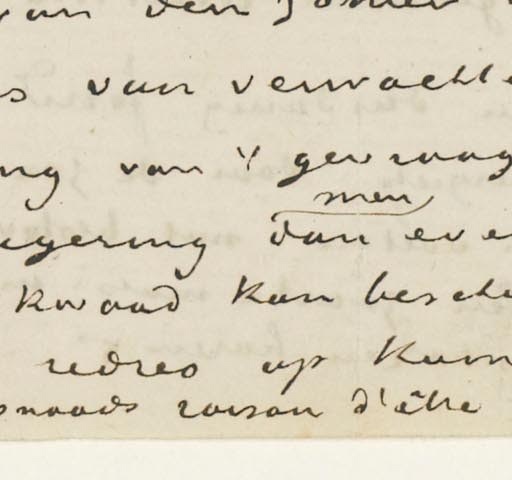 van den zomer
s van verwacht
ng van 't gevraag
men
egering dan eve
kwaad kan besch
redres op kan
smaads raison d'être